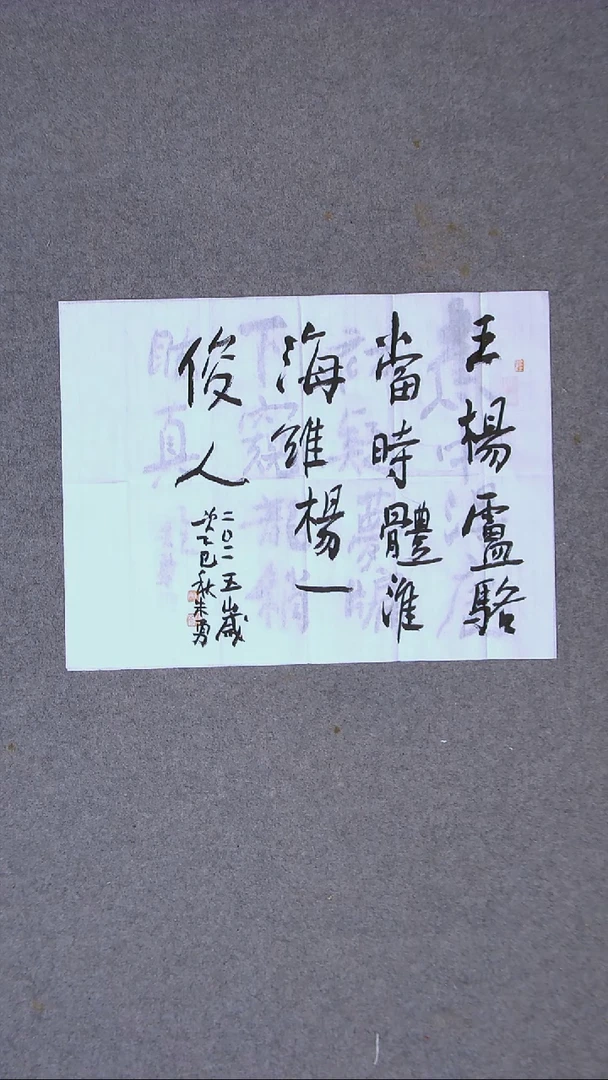 王楊盧駱
當時體淮
海維楊一
俊人
二〇二五歲
乙巳秋朱勇